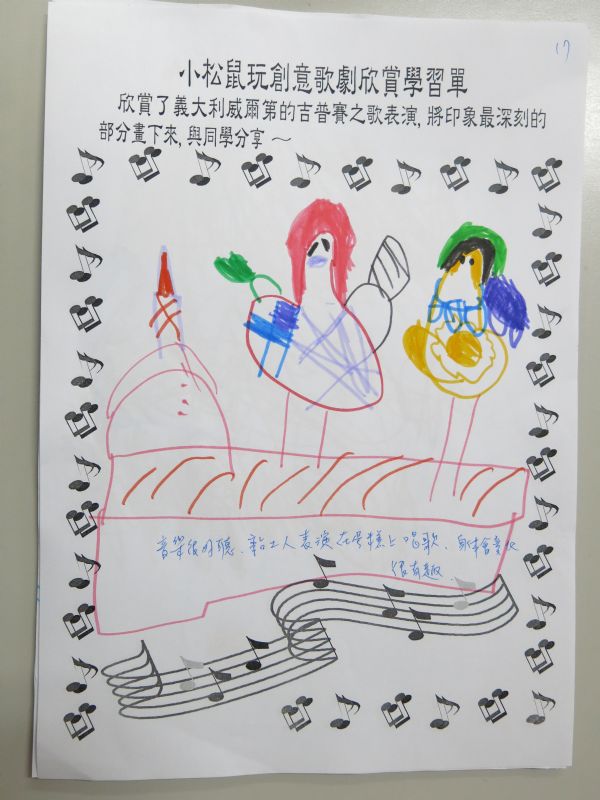 17
小松鼠玩創意歌劇欣賞學習單
欣賞了義大利威爾第的吉普賽之歌表演,將印象最深刻的
部分畫下來,與同學分享~
音樂很好聽、黏土人表演在蛋糕上唱歌、身体會變
很有趣.